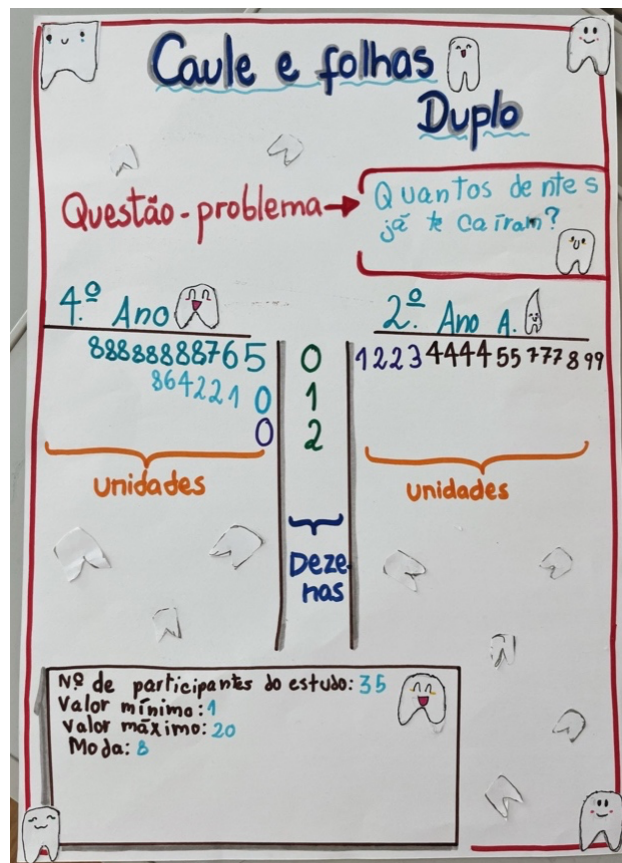 Caule e folhas
Duplo
Questão-problema →
Quantos dentes
já te caíram?
4.º Ano
2.º Ano A.
88888888765 0 1223444455777899
8642210 1
0 2
unidades
unidades
Deze-
nas
Nº de participantes do estudo: 35
Valor mínimo: 1
Valor máximo: 20
Moda: 8